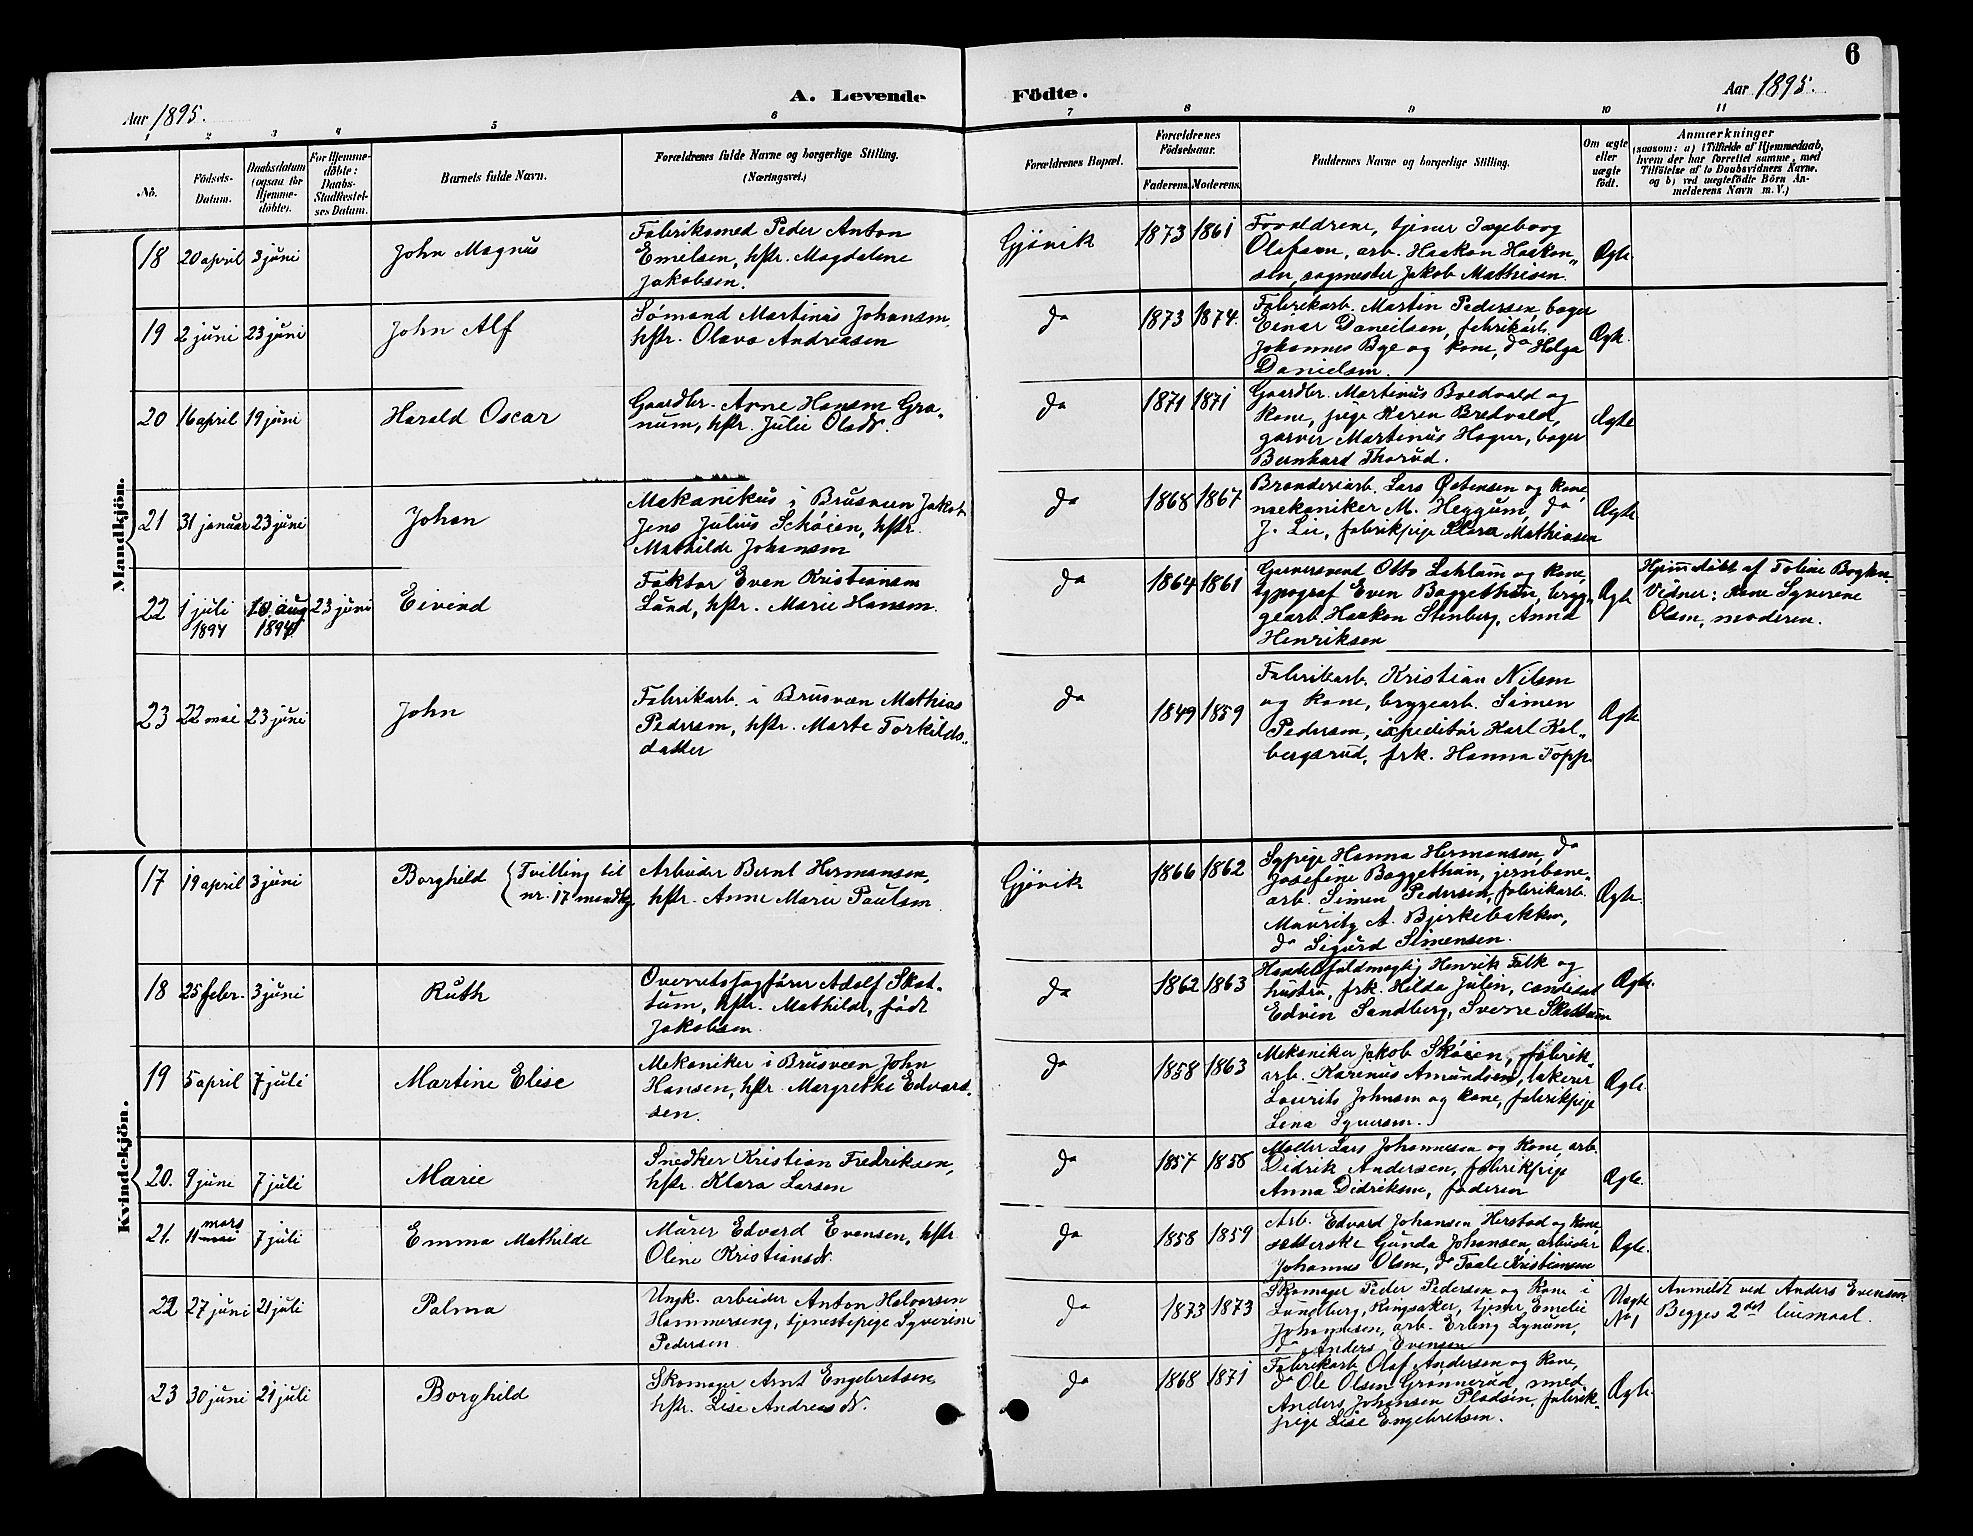 6
Aar 1895.
A. Levende
Födte.
Aar 1895.
1 2 3 4 5 6 7 8 9 10 11
No.
Födsels-
Datum.
Daabsdatum
(ogsaa for
Hjemme-
döbte).
For Hjemme-
döbte:
Daabs-
Stadfæstel-
ses Datum.
Barnets fulde Navn.
Forældrenes fulde Navne og borgerlige Stilling.
(Næringsvei.)
Forældrenes Bopæl.
Forældrenes
Födselsaar.
Faderens. Moderens.
Faddernes Navne og borgerlige Stilling.
Om ægte
eller
uægte
født.
Anmærkninger
(saasom: a) i Tilfælde af Hjemmedaab,
hvem der har forrettet samme, med
Tilföielse af to Daabsvidners Navne,
og b) ved uægtefödte Börn An-
melderens Navn m. V.)
Mandkjön.
18 20 april 3 juni John Magnus
Fabriksmed Peder Anton
Emilsen, hstr. Magdalene
Jakobsen.
Gjøvik 1873 1861
Forældrene, tjener Ingeborg
Olafsen, arb. Haakon Haakon-
sen, sagmester Jakob Mathisen.
Ægte.
19 2 juni 23 juni John Alf
Sømand Martinus Johansen,
hstr. Olava Andreasen
do 1873 1874.
Fabrikarb. Martin Pedersen, bager
Einar Daneilsen, fabrikarb.
Johannes Bye og kone, do Helga
Danielsen.
Ægte.
20 16 april 19 juni Harald Oscar
Gaardbr. Arne Hansen Gra-
num, hstr. Julie Olsdtr.
do 1871 1871
Gaardbr. Martinus Bredvald og
kone, pige Karen Bredvald,
garver Martinus Hagen, bager
Bernhard Thorud.
Ægte
21 31 januar 23 juni Johan
Mekanikus i Brusveen Jakob
Jens Julius Schøien, hstr.
Mathilde Johansen
do 1868 1867
Brænderiarb. Lars Østensen og kone,
mekaniker M. Heggum, do
J. Lie, fabrikpige Klara Mathiasen
Ægte
22 1 juli 1894 10 aug 1894 23 juni Eivind
Faktor Even Kristiansen
Lund, hstr. Marie Hansen.
do 1864 1861
Garversvend Otto Lahlum og kone,
typograf Even Baggethun, bryg-
gearb. Haakon Stenberg, Anna
Henriksen
Ægte
Hjemmedøbt af Toline Bogken.
Vidner: Anne Syverine
Olsen, moderen.
23 22 mai 23 juni John
Fabrikarb. i Brusveen Mathias
Pedersen, hstr. Marte Torkilds-
datter
do 1849 1859
Fabrikarb. Kristian Nilsen
og kone, bryggearb. Simen
Pedersen, expeditør Karl Kol-
bergsrud, frk. Hanna Topp.
Ægte
Kvindekjön.
17 19 april 3 juni Borghild (Tvilling til
nr. 17 mandkj.
Arbeider Bernt Hermansen,
hstr. Anne Marie Paulsen
Gjøvik 1866 1862
Sypige Hanna Hermansen, do
Josefine Baggethun, jernbane-
arb. Simen Pedersen, fabrikarb.
Mauritz A. Bjerkebakken,
do Sigurd Simensen.
Ægte.
18 25 febr. 3 juni Ruth
Overretssagfører Adolf Skat-
tum, hstr. Mathilde, født
Jakobsen
do 1862 1863
Handelsfuldmægtig Henrik Falk og
hustru, frk. Hilda Julin, candidat
Edvin Sandberg, Sverre Skattum
Ægte.
19 5 april 7 juli Martine Elise
Mekaniker i Brusveen John
Hansen, hstr. Margrethe Edvard-
sen.
do 1858 1863
Mekaniker Jakob Skøien, fabrik-
arb. Karenus Amundsen, lakerer
Laurits Johnsen og kone, fabrikpige
Lina Syversen.
Ægte.
20. 9 june 7 juli Marie
Snedker Kristian Fredriksen,
hstr. Klara Larsen
do 1857 1858
Maler Lars Johannesen og kone, arb.
Didrik Andersen, fabrikpige
Anna Didriksen, faderen
Ægte.
21. 11 mars mai 7 juli Emma Mathilde
Murer Edvard Evensen, hstr
Olene Kristiansdtr.
do 1858 1859
Arb. Edvard Johansen Herstad og kone,
sætterske Gunda Johansen, arbeider
Johannes Olsen, do Taale Kristiansen
Ægte.
22 27 juni 21 juli Palma
Ungk. arbeider Anton Halvorsen
Hammerseng, tjenestepige Syverine
Pedersen
do 1873 1873
Skomager Peder Pedersen og kone i
Lundberg, Ringsaker, tjener Emelie
Johannesen, arb. Erling Lynum,
do Anders Evensen
Uægte
No 1
Anmeldt ved Anders Evensen.
Begges 2det leiemaal.
23 30 juni 21 juli Borghild
Skomager Arnt Engebretsen,
hstr. Lise Andreasdtr.
do 1868 1871
Fabrikarb. Olaf Andersen og kone,
do Ole Olsen Grønnerud, smed
Anders Johansen Pladsen, fabrik-
pige Lise Engebretsen.
Ægte.